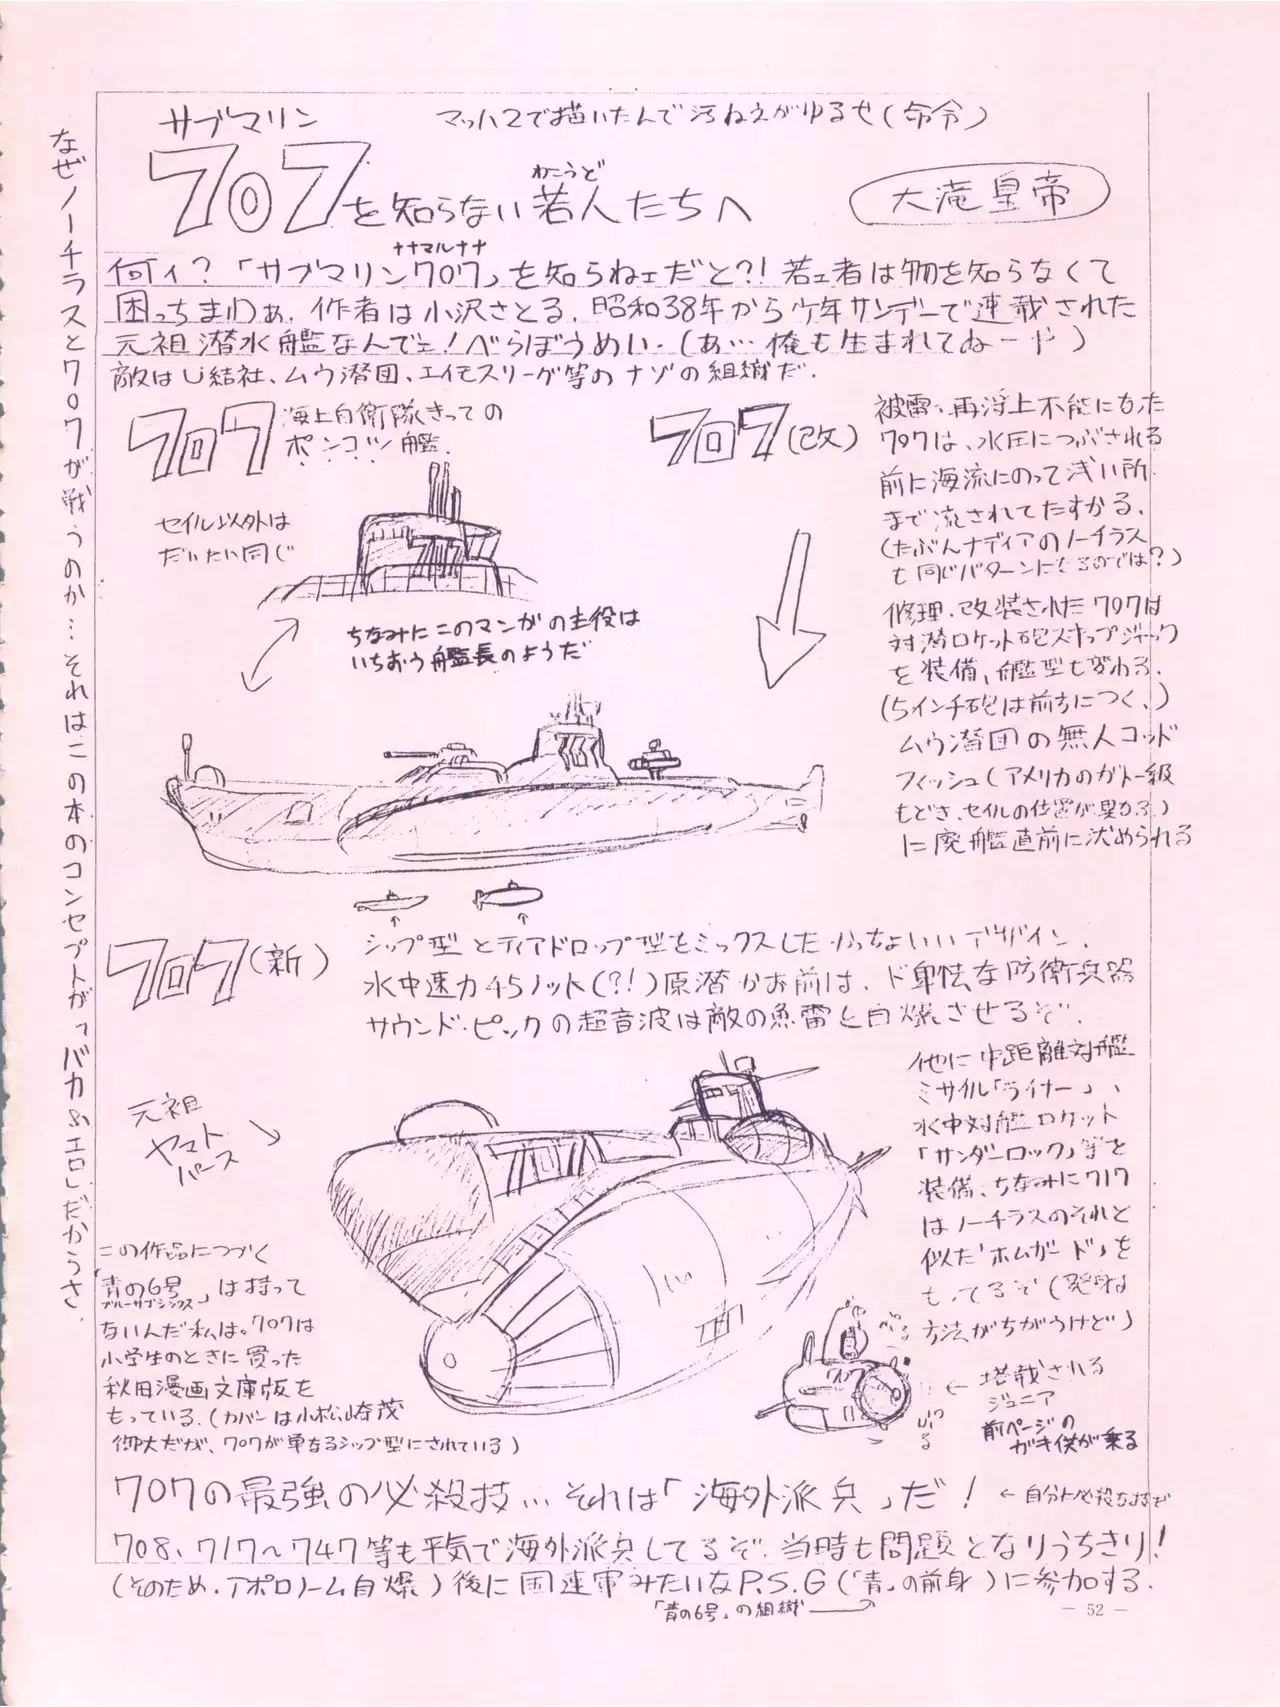 サブマリン
マッハ2で描いたんで汚ねえがゆるせ(命令)
707を知らない若人たちへ
わこうど
大滝皇帝
ナナマルナナ
何ィ?「サブマリン707」を知らねェだと?!若ェ者は物を知らなくて
困っちまわぁ.作者は小沢さとる.昭和38年から少年サンデーで連載された
元祖潜水艦なんでェ!べらぼうめい.(あ…俺も生まれてねーや)
敵はU結社、ムウ潜団、エイモスリーグ等のナゾの組織だ.
なぜノーチラスと707が戦うのか…それはこの本のコンセプトが「バカ&エロ」だからさ.
707
海上自衛隊きっての
ポンコツ艦.
セイル以外は
だいたい同じ
ちなみにこのマンガの主役は
いちおう艦長のようだ
707(改)
被雷、再浮上不能になった
707は、水圧につぶされる
前に海流にのって浅い所
まで流されてたすかる.
(たぶんナディアのノーチラス
も同じパターンになるのでは?)
修理.改装された707は
対潜ロケット砲スキップジャック
を装備、艦型も変わる.
(5インチ砲は前方につく、)
ムウ潜団の無人コッド
フィッシュ(アメリカのガトー級
もどき.セイルの位置が異なる)
に廃艦直前に沈められる
707(新)
シップ型とティアドロップ型をミックスしたかっちょいいデザイン.
水中速力45ノット(?!)原潜かお前は、ド卑怯な防衛兵器
サウンド・ピックの超音波は敵の魚雷を自爆させるぞ.
元祖
ヤマト
パース
他に中距離対艦
ミサイル「ライナー」、
水中対艦ロケット
「サンダーロック」等を
装備、ちなみに717
はノーチラスのそれと
似た「ホムガード」を
もってるぞ(発射
方法がちがうけど)
この作品につづく
「青の6号」は持って
ブルーサブシックス
ないんだ私は.707は
小学生のときに買った
秋田漫画文庫版を
もっている.(カバーは小松崎茂
御大だが、707が単なるシップ型にされている)
← 搭載される
ジュニア
前ページの
ガキ供が乗る
707の最強の必殺技…それは「海外派兵」だ!
708、717〜747等も平気で海外派兵してるぞ.当時も問題となりうちきり!
(そのため.アポロノーム自爆)後に国連軍みたいなP.S.G(「青」の前身)に参加する.
「青の6号」の組織
— 52 —